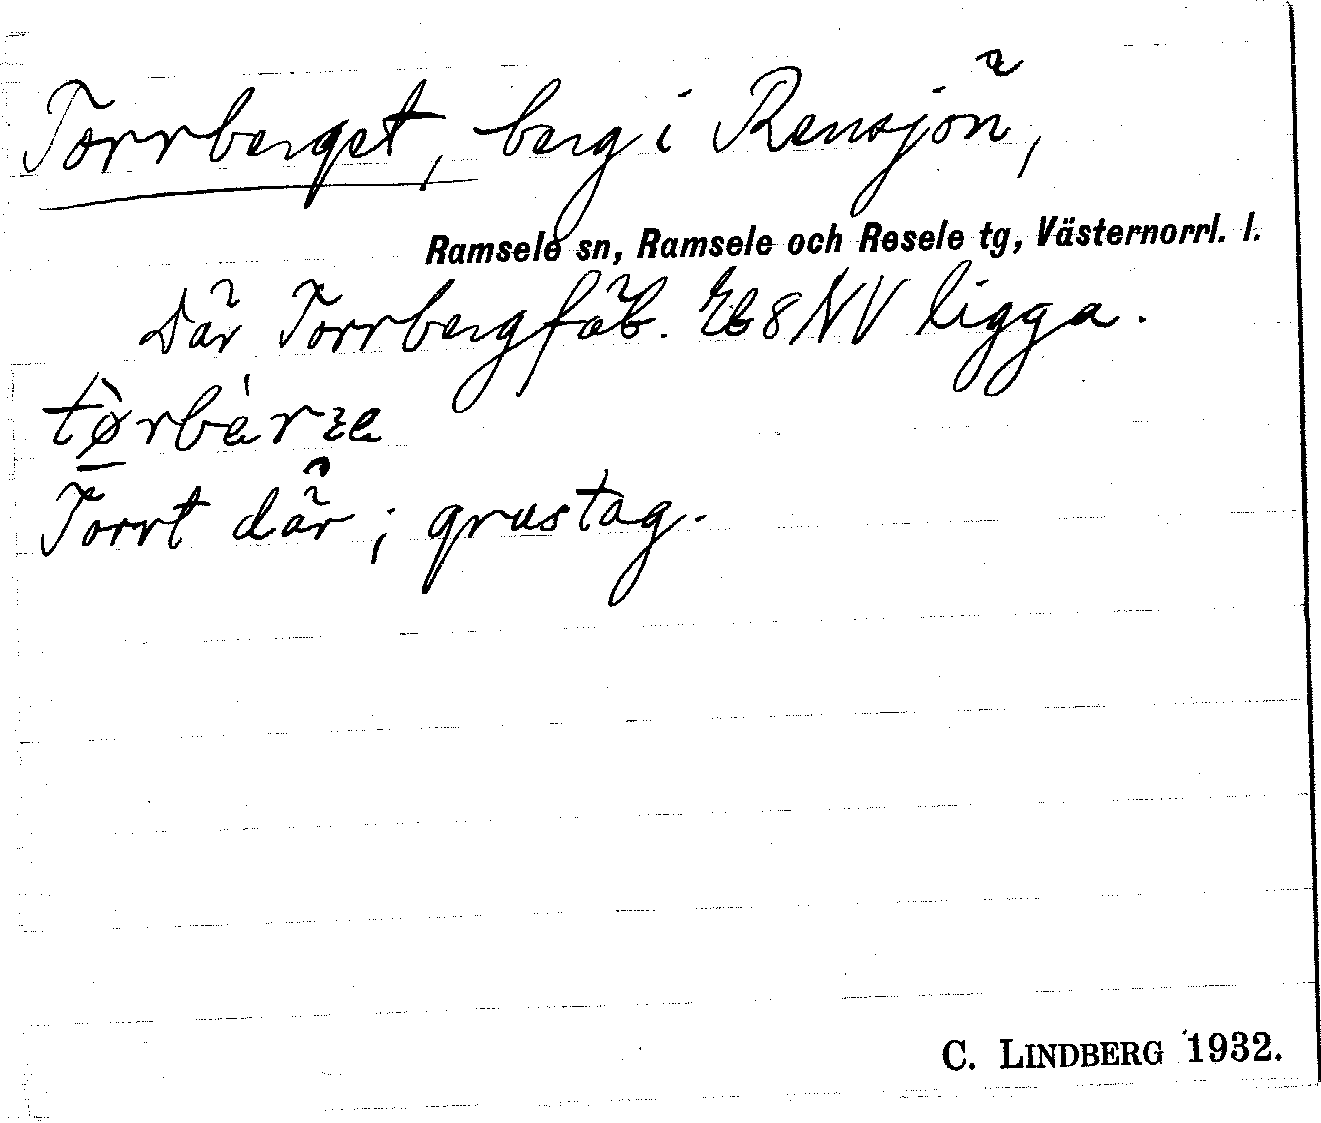 Torrberget, berg i Rensjön,
Ramsele sn, Ramsele och Resele tg, Västernorrl. l.
Där Torrbergfäb. Eb8NV ligga.
Torrt där; grustag.
C. LINDBERG 1932.